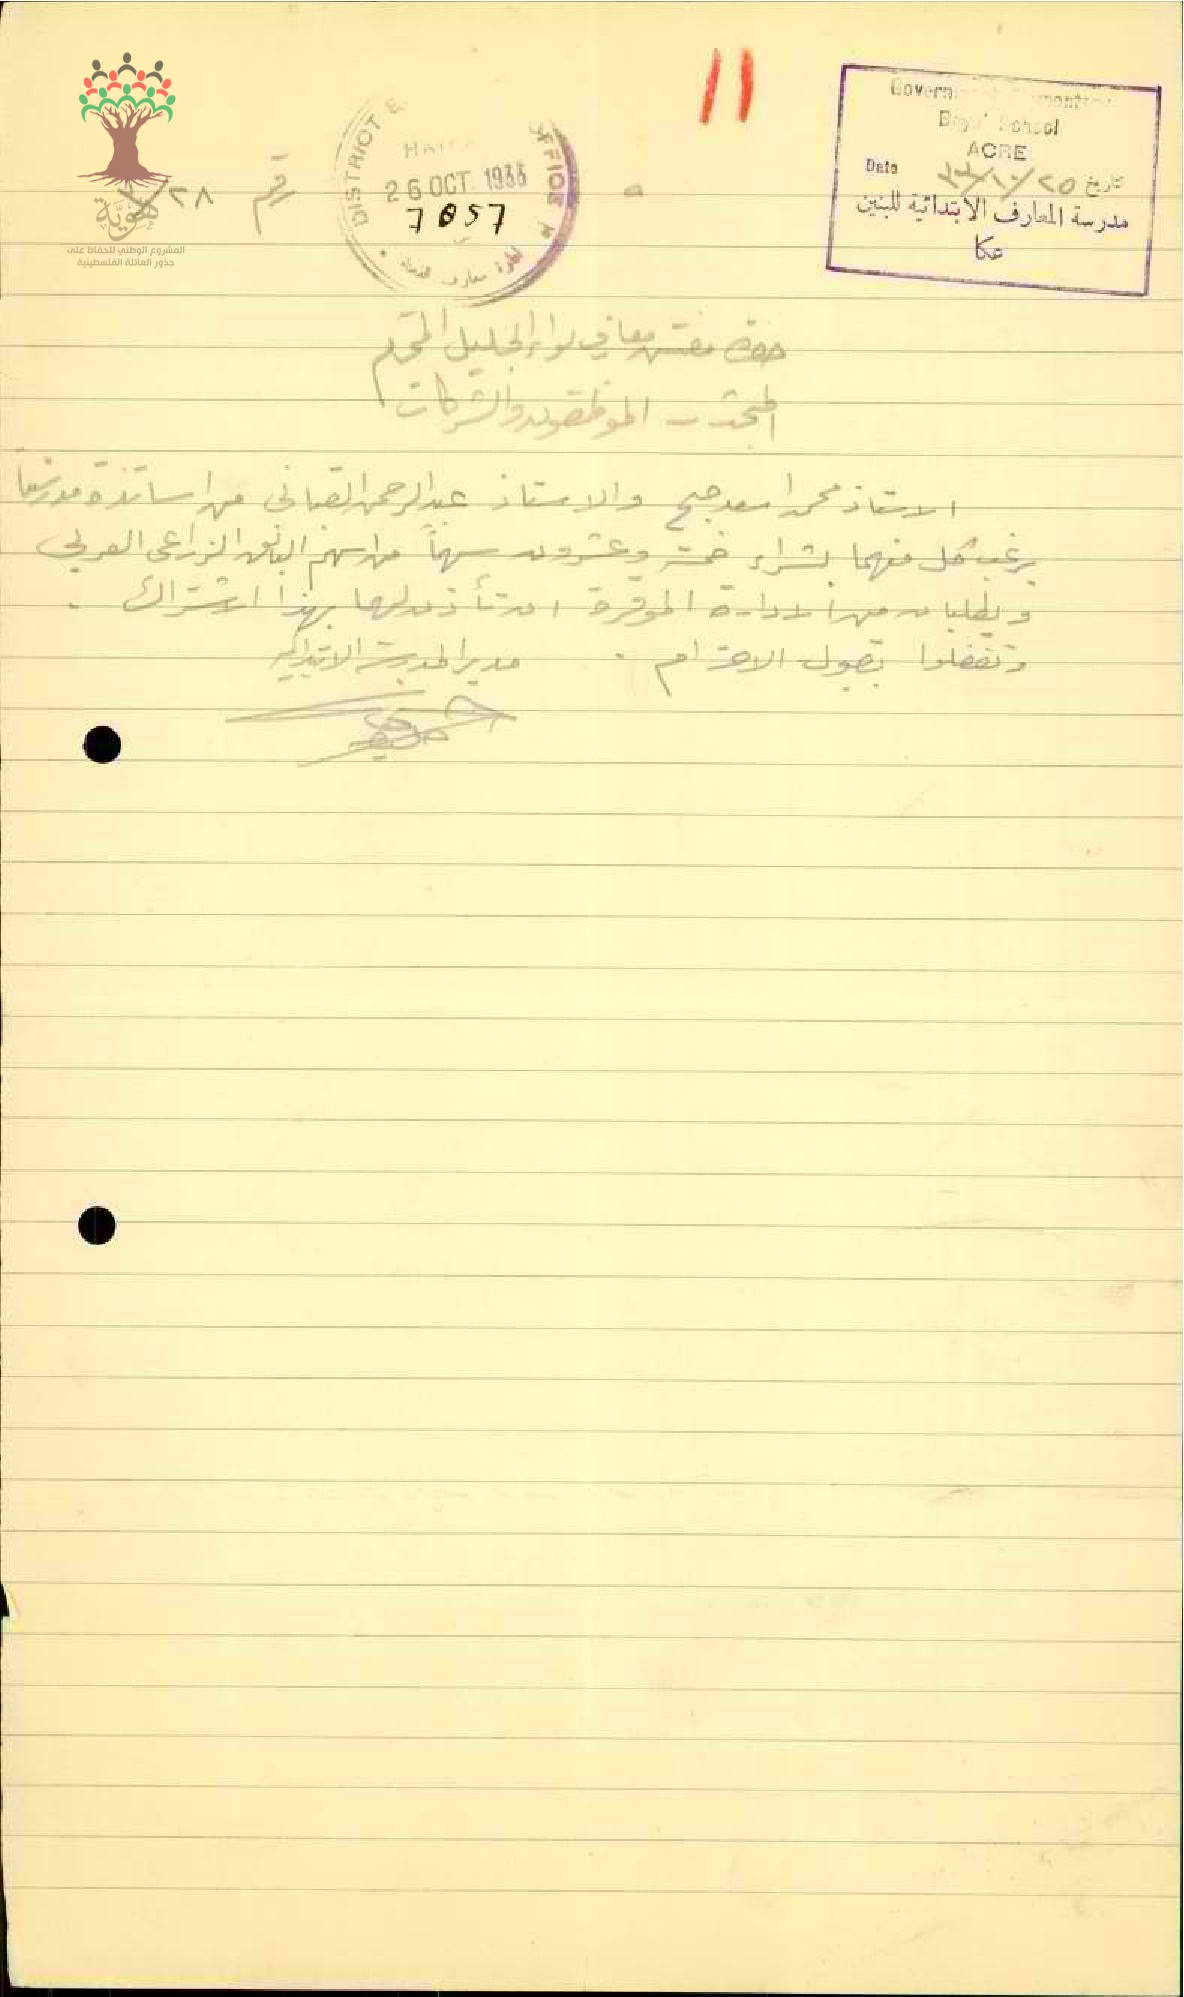 11
Government Elementary
Boys' School
ACRE
Date ٢٥/١٠/٣٣ تاريخ
مدرسة المعارف الابتدائية للبنين
عكا
DISTRICT E OFFICE
HAIFA
26 OCT. 1933
7057
معارف
رقم ٢٨/
هوية
المشروع الوطني للحفاظ على
جذور العائلة الفلسطينية
حضرة مفتش معارف لواء الجليل المحترم
المبحث - الموظفون والشركات
الاستاذ محمد اسعد والاستاذ عبد الرحمن من اساتذة مدرستنا
يرغب كل منهما بشراء خمسة وعشرون سهماً من اسهم البنك الزراعي العربي
ويطلبان من الادارة الموقرة ان تأذن لهما بهذا الاشتراك .
وتفضلوا بقبول الاحترام . مدير المدرسة الابتدائية